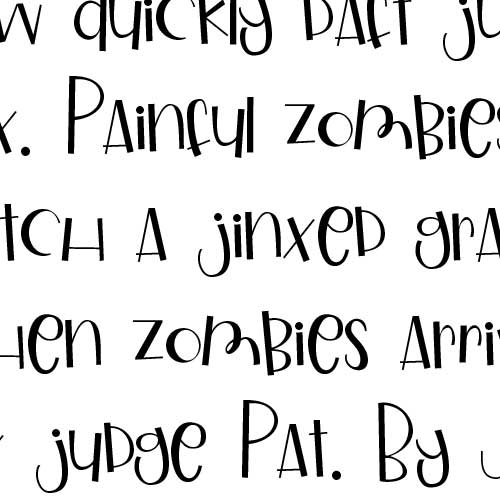 w quickly daft ju
x. Painful zombies
tch a jinxed gra
hen zombies arri
judge Pat. By J